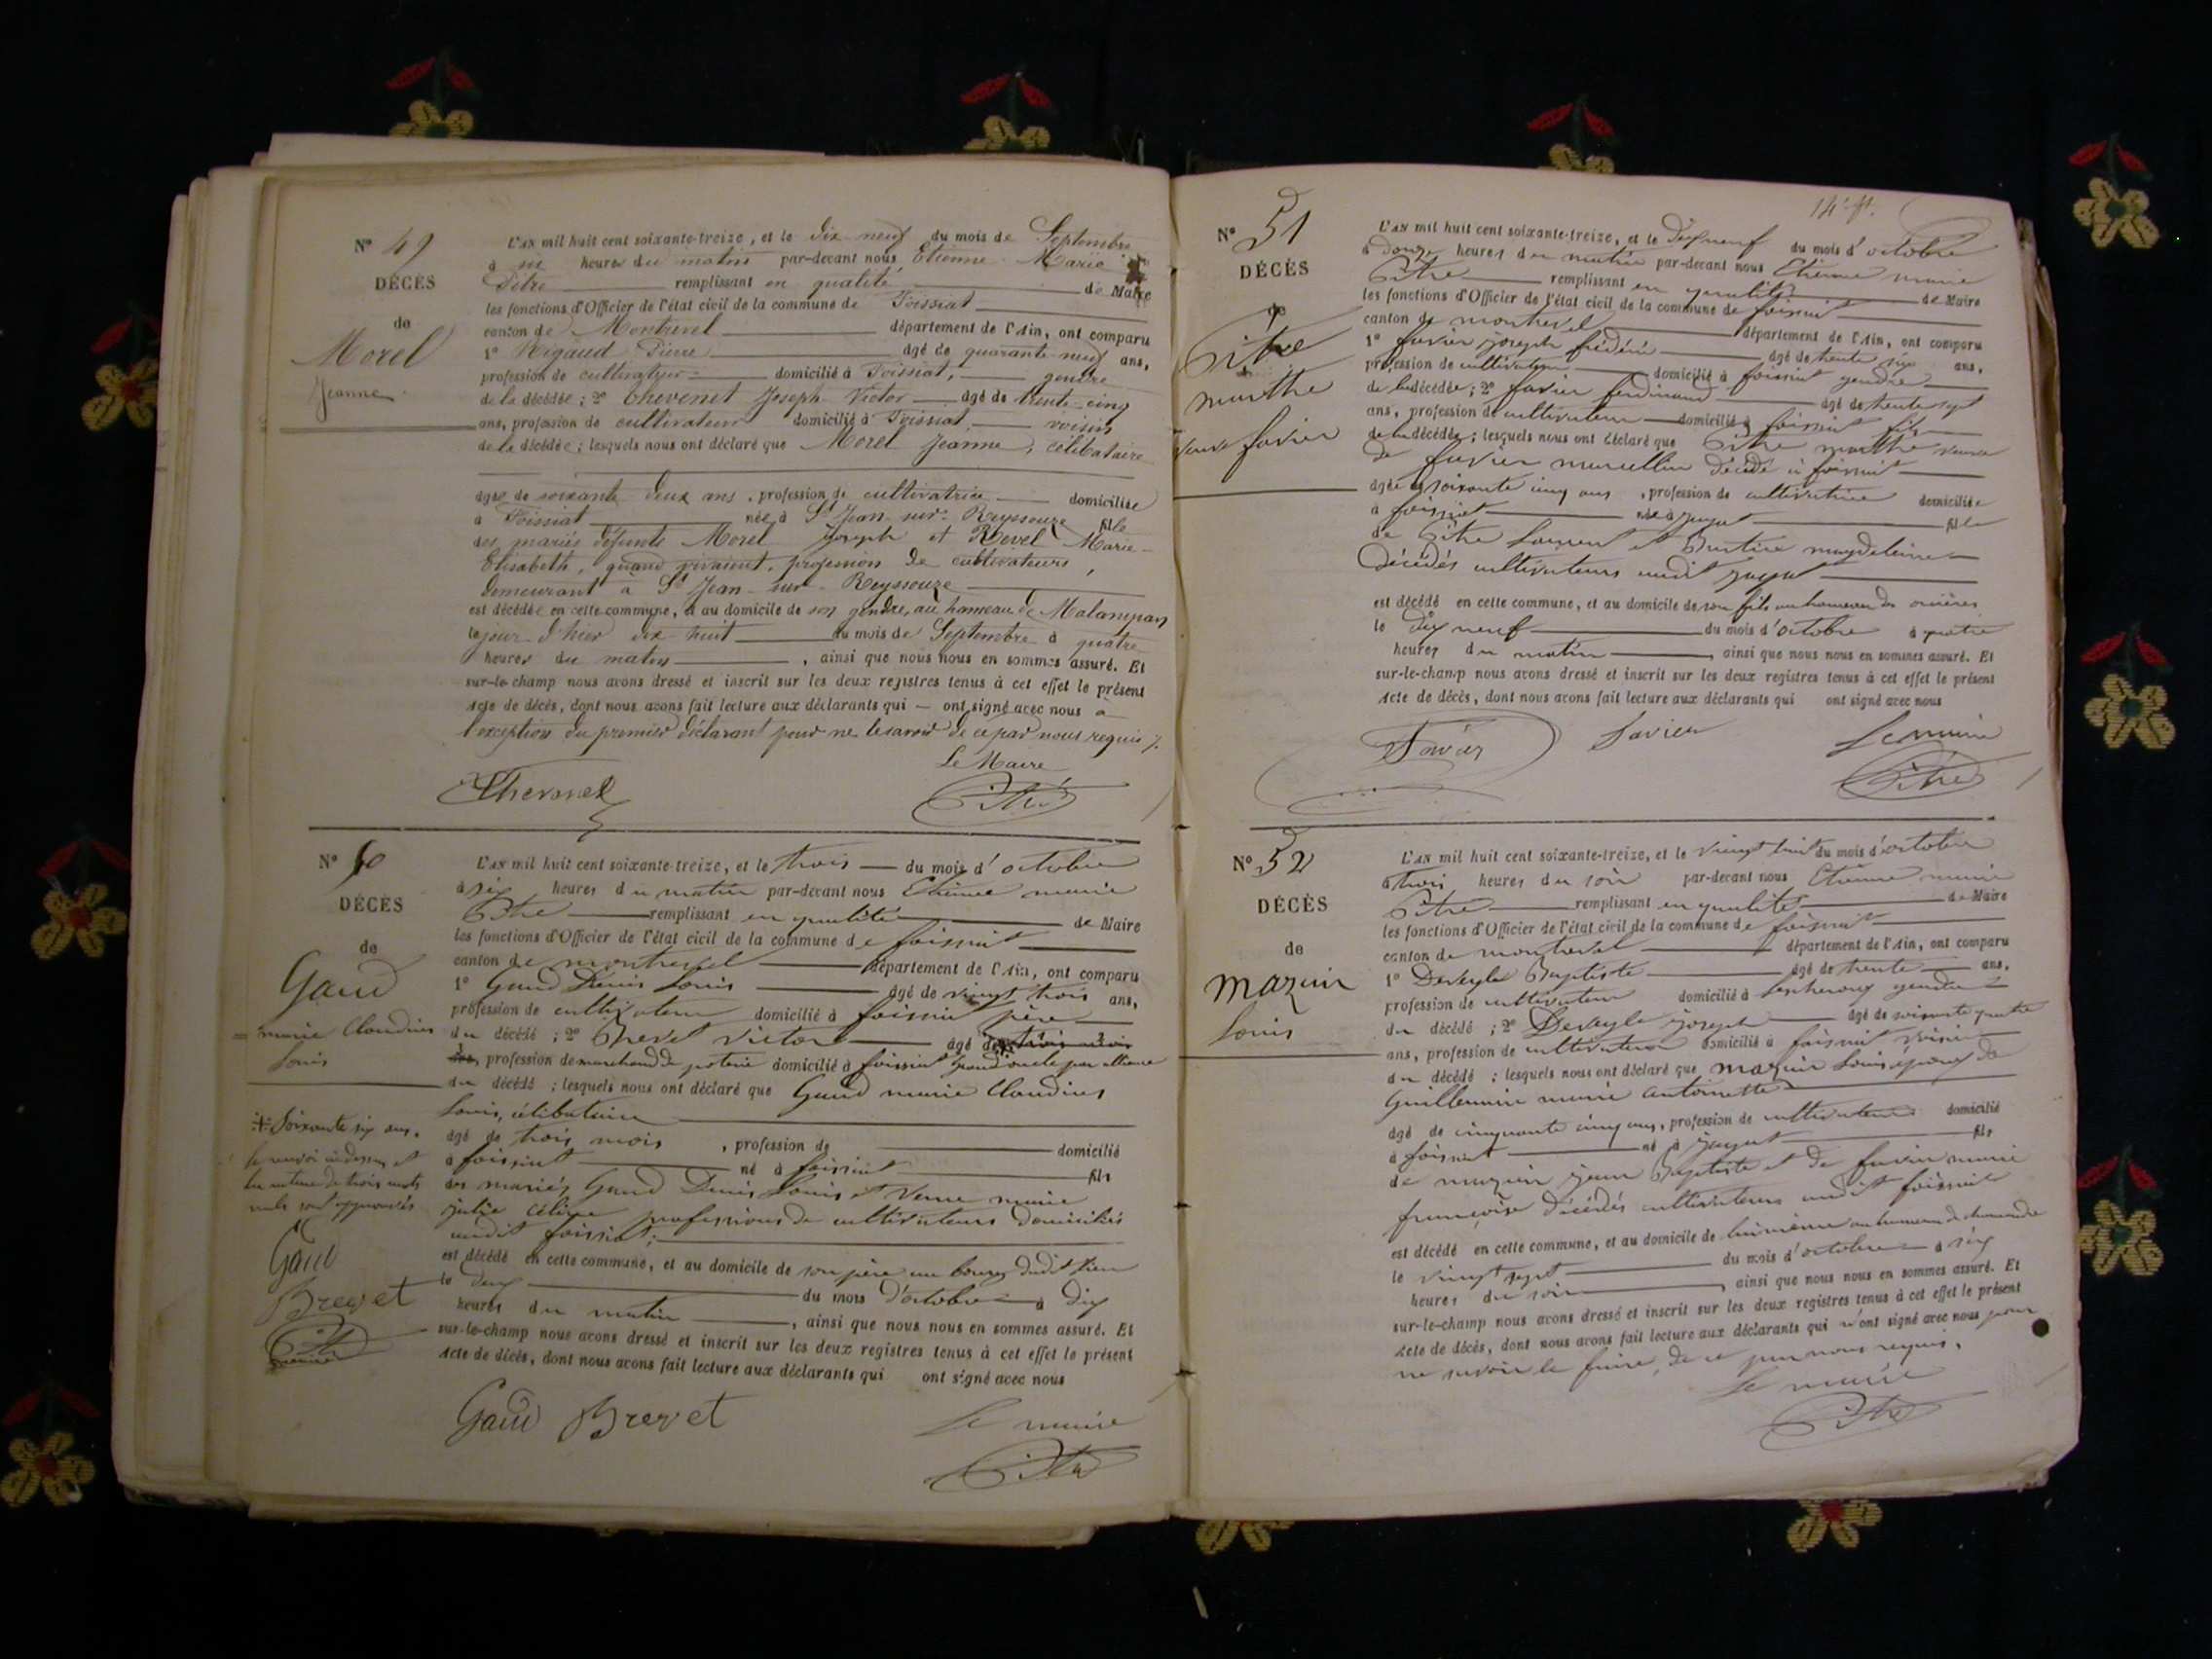 N° 49
DÉCÈS
de
Morel
Jeanne
L'AN mil huit cent soixante-treize, et le dix neuf du mois de Septembre
à six heures du matin par-devant nous Etienne Marie
Pitre remplissant en qualité de Maire
les fonctions d'Officier de l'état civil de la commune de Foissiat
canton de Montrevel département de l'Ain, ont comparu
1° Rigaud Pierre âgé de quarante neuf ans,
profession de cultivateur domicilié à Foissiat, gendre
de la décédée ; 2° Chevenet Joseph Victor âgé de trente cinq
ans, profession de cultivateur domicilié à Foissiat, voisin
de la décédée ; lesquels nous ont déclaré que Morel Jeanne, célibataire
âgée de soixante deux ans, profession de cultivatrice domiciliée
à Foissiat née à St Jean-sur-Reyssouze fille
des mariés défunts Morel Joseph et Revel Marie-
Elisabeth, quand vivaient, profession de cultivateurs,
demeurant à St Jean-sur-Reyssouze
est décédée en cette commune, et au domicile de son gendre, au hameau de Malampan
le jour d'hier dix huit du mois de Septembre à quatre
heures du matin, ainsi que nous nous en sommes assuré. Et
sur-le-champ nous avons dressé et inscrit sur les deux registres tenus à cet effet le présent
acte de décès, dont nous avons fait lecture aux déclarants qui — ont signé avec nous à
l'exception du premier déclarant pour ne le savoir de ce par nous requis
Le Maire
Chevenet Pitre
N° 50
DÉCÈS
de
Gaud
marie Claudius
Louis
Soixante six ans.
le renvoi ci dessus et
la rature de trois mots
nuls sont approuvés
Gaud
Brevet
Pitre
L'AN mil huit cent soixante-treize, et le trois du mois d'octobre
à six heures du matin par-devant nous Etienne marie
Pitre remplissant en qualité de Maire
les fonctions d'Officier de l'état civil de la commune de foissiat
canton de montrevel département de l'Ain, ont comparu
1° Gaud Denis Louis âgé de vingt trois ans,
profession de cultivateur domicilié à foissiat père
du décédé ; 2° Brevet victor âgé de
ans, profession de marchand de poterie domicilié à foissiat grand oncle par alliance
du décédé ; lesquels nous ont déclaré que Gaud marie Claudius
Louis, célibataire
âgé de trois mois, profession de domicilié
à foissiat né à foissiat fils
des mariés Gaud Denis Louis et marie
julie céline professions de cultivateurs domiciliés
audit foissiat ;
est décédé en cette commune, et au domicile de son père au bourg dudit lieu
le deux du mois d'octobre à dix
heures du matin, ainsi que nous nous en sommes assuré. Et
sur-le-champ nous avons dressé et inscrit sur les deux registres tenus à cet effet le présent
acte de décès, dont nous avons fait lecture aux déclarants qui ont signé avec nous
Gaud Brevet Le maire
Pitre
N° 51
DÉCÈS
de
Pitre
marthe
veuve favier
L'AN mil huit cent soixante-treize, et le dix neuf du mois d'octobre
à douze heures du matin par-devant nous Etienne marie
Pitre remplissant en qualité de Maire
les fonctions d'Officier de l'état civil de la commune de foissiat
canton de montrevel département de l'Ain, ont comparu
1° favier joseph frédéric âgé de trente six ans,
profession de cultivateur domicilié à foissiat gendre
de la décédée ; 2° favier ferdinand âgé de trente sept
ans, profession de cultivateur domicilié à foissiat fils
de la décédée ; lesquels nous ont déclaré que Pitre marthe veuve
de favier marcellin décédé à foissiat
âgée de soixante cinq ans, profession de cultivatrice domiciliée
à foissiat née à jayat fille
de Pitre Laurent et magdeleine
décédés cultivateurs audit jayat
est décédé en cette commune, et au domicile de son fils au hameau des
le dix neuf du mois d'octobre à quatre
heures du matin, ainsi que nous nous en sommes assuré. Et
sur-le-champ nous avons dressé et inscrit sur les deux registres tenus à cet effet le présent
acte de décès, dont nous avons fait lecture aux déclarants qui ont signé avec nous
Favier favier Le maire
Pitre
N° 52
DÉCÈS
de
mazuir
Louis
L'AN mil huit cent soixante-treize, et le vingt huit du mois d'octobre
à trois heures du soir par-devant nous Etienne marie
Pitre remplissant en qualité de Maire
les fonctions d'Officier de l'état civil de la commune de foissiat
canton de montrevel département de l'Ain, ont comparu
1° Baptiste âgé de trente ans,
profession de cultivateur domicilié à Lescheroux gendre
du décédé ; 2° joseph âgé de soixante quatre
ans, profession de cultivateur domicilié à foissiat voisin
du décédé ; lesquels nous ont déclaré que mazuir Louis époux de
Guillemin marie antoinette
âgé de cinquante cinq ans, profession de cultivateur domicilié
à foissiat né à jayat fils
de mazuir jean Baptiste et de favier marie
françoise décédés cultivateurs audit foissiat
est décédé en cette commune, et au domicile de lui même au hameau de
le vingt sept du mois d'octobre à six
heures du soir, ainsi que nous nous en sommes assuré. Et
sur-le-champ nous avons dressé et inscrit sur les deux registres tenus à cet effet le présent
acte de décès, dont nous avons fait lecture aux déclarants qui n'ont signé avec nous pour
ne savoir le faire, de ce par nous requis.
Le maire
Pitre